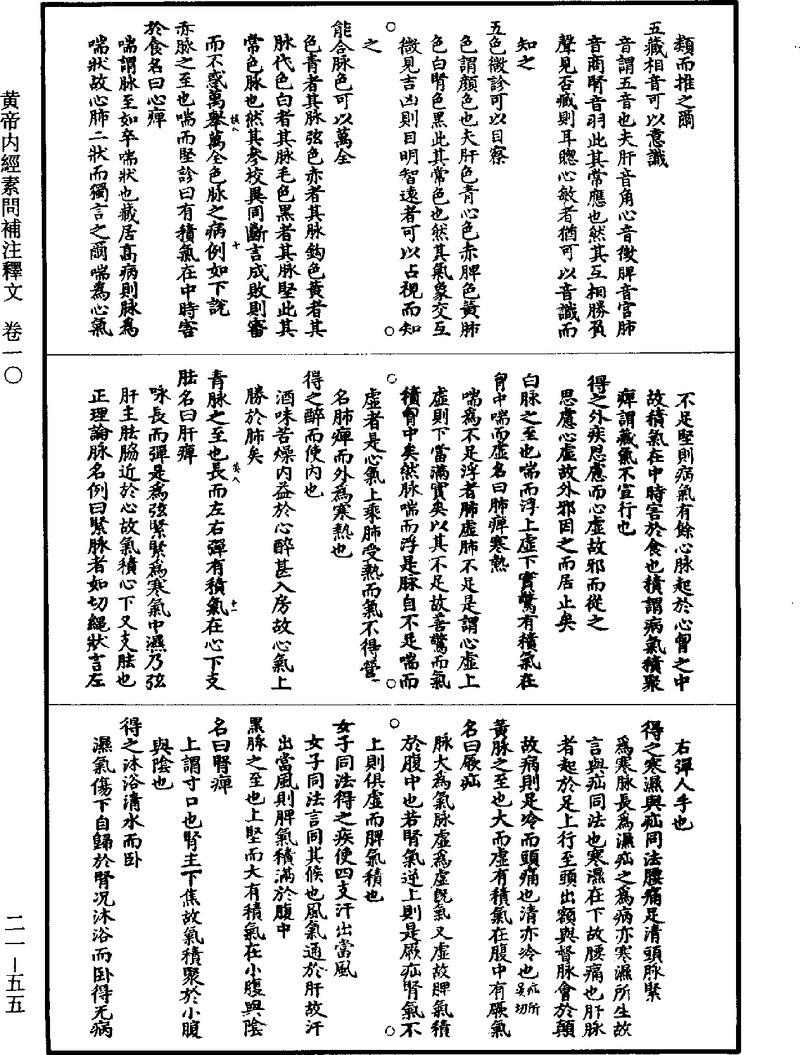 黄帝内經素問補注釋文　卷一〇
二一—五五
類而推之爾
五藏相音可以意識
音謂五音也夫肝音角心音徵脾音宮肺
音商腎音羽此其常應也然其互相勝負
聲見否臧則耳聰心敏者猶可以音識而
知之
五色微診可以目察
色謂顏色也夫肝色青心色赤脾色黃肺
色白腎色黑此其常色也然其氣象交互
微見吉凶則目明智遠者可以占視而知
之
能合脉色可以萬全
色青者其脉弦色赤者其脉鈎色黃者其
脉代色白者其脉毛色黑者其脉堅此其
常色脉也然其參校異同斷言成敗則審
而不惑萬舉萬全色脉之病例如下說
赤脉之至也喘而堅診曰有積氣在中時害
於食名曰心痺
喘謂脉至如卒喘狀也藏居高病則脉為
喘狀故心肺二狀而獨言之爾喘為心氣
不足堅則病氣有餘心脉起於心胷之中
故積氣在中時害於食也積謂病氣積聚
痺謂藏氣不宣行也
得之外疾思慮而心虛故邪而從之
思慮心虛故外邪因之而居止矣
白脉之至也喘而浮上虛下實驚有積氣在
胷中喘而虛名曰肺痺寒熱
喘為不足浮者肺虛肺不足是謂心虛上
虛則下當滿實矣以其不足故善驚而氣
積胷中矣然脉喘而浮是脉自不足喘而
虛者是心氣上乘肺受熱而氣不得營
名肺痺而外為寒熱也
得之醉而使內也
酒味苦燥內益於心醉甚入房故心氣上
勝於肺矣
青脉之至也長而左右彈有積氣在心下支
胠名曰肝痺
脉長而彈是為弦緊緊為寒氣中濕乃弦
肝主胠脇近於心故氣積心下又支胠也
正理論脉名例曰緊脉者如切繩狀言左
右彈人手也
得之寒濕與疝同法腰痛足清頭脉緊
為寒脉長為濕疝之為病亦寒濕所生故
言與疝同法也寒濕在下故腰痛也肝脉
者起於足上行至頭出額與督脉會於顛
故病則足冷而頭痛也清亦冷也疝所吴切
黃脉之至也大而虛有積氣在腹中有厥氣
名曰厥疝
脉大為氣脉虛為虛旣氣又虛故脾氣積
於腹中也若腎氣逆上則是厥疝腎氣不
上則俱虛而脾氣積也
女子同法得之疾使四支汗出當風
女子同法言同其候也風氣通於肝故汗
出當風則脾氣積滿於腹中
黑脉之至也上堅而大有積氣在小腹與陰
名曰腎痺
上謂寸口也腎主下焦故氣積聚於小腹
與陰也
得之沐浴清水而卧
濕氣傷下自歸於腎况沐浴而卧得无病